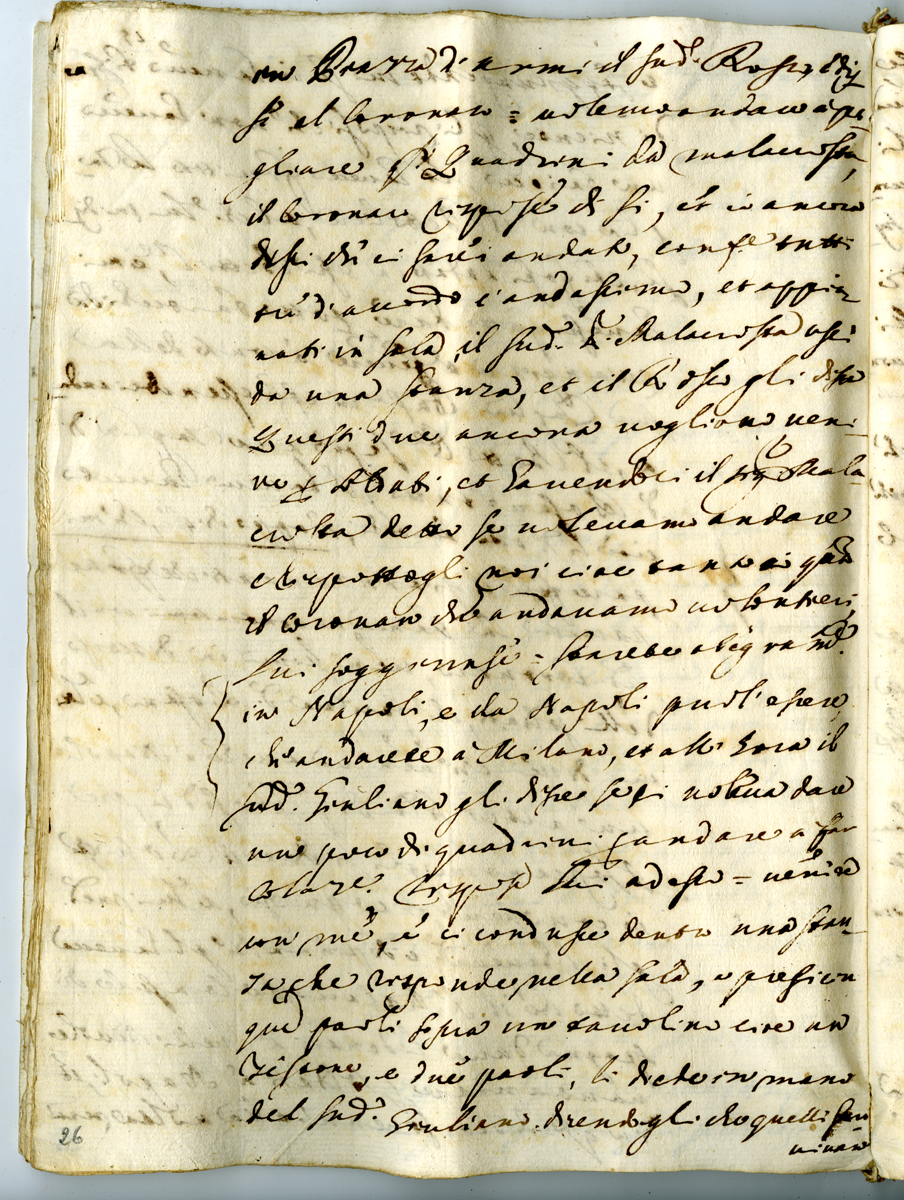 in Piazza di armi il sud.º Rosso, e dis
se al Coronaro = volemo andare à pi
gliare li Quadrini da Malacrosta,
il Coronaro rispose di si, et io ancora
dissi che ci sarei andato, tutti
trè d'accordo c'andassimo, et appiz
nati in sala il sud.º Malacrosta uscì
da una stanza, et il Rosso gli disse
Questi due ancora vogliono veni
re, et havendoci il sig.r Mala
crosta detto se volevamo andare
e risposttogli noi cioè tanto io qto
il Coronaro che andavamo volontieri,
Lui soggiunse =
in Napoli, e da Napoli puol'essere
che andarete à Milano, et all'hora il
sud.º Giuliano gli disse se ci voleva dare
un poco di quadrini p andare a far
colaz.e rispose Lui adesso = venite
con mè, e ci condusse dentro una stan
za che risponde nella sala, e prese cin
que paoli sopra un tavolino cioè un
testone, e due paoli, li diede in mano
del sud.º Giuliano dicendogli che quelli ser
vivano
26